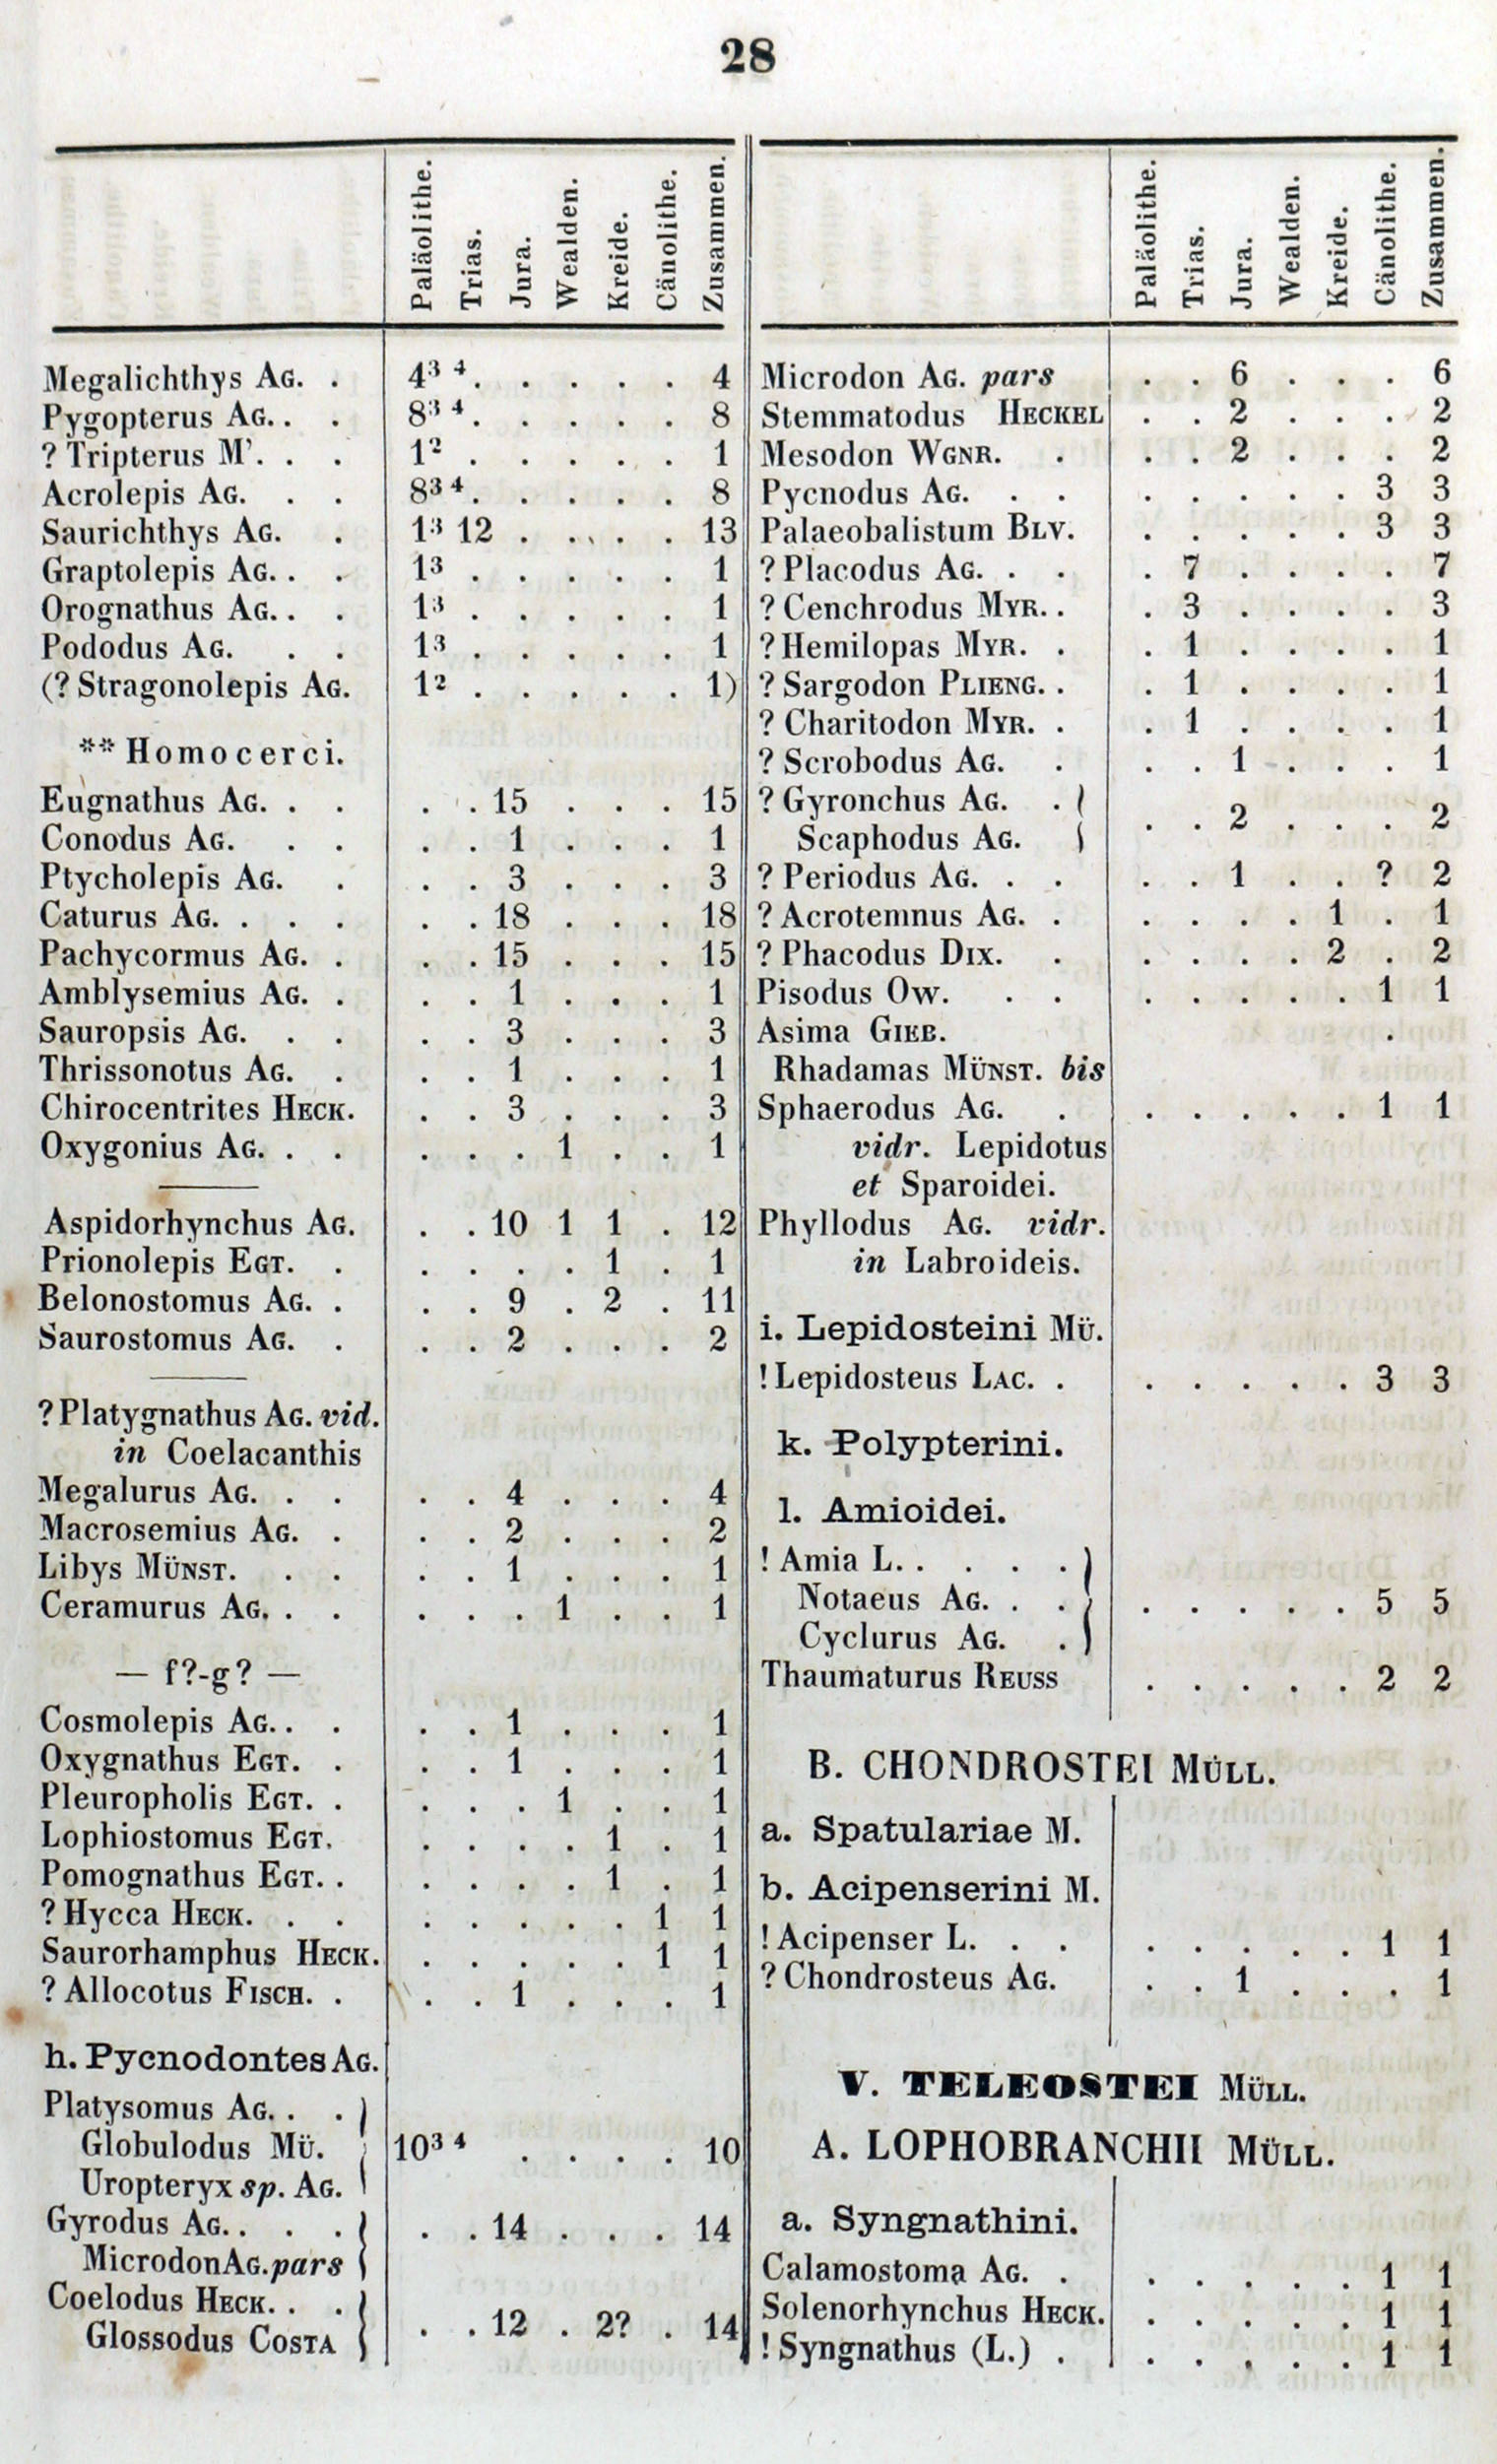 28
Paläolithe. Trias. Jura. Wealden. Kreide. Cänolithe. Zusammen.
Megalichthys Ag. . 4³ ⁴ . . . . . 4
Pygopterus Ag. . . 8³ ⁴ . . . . . 8
? Tripterus M’. . . 1² . . . . . 1
Acrolepis Ag. . . 8³ ⁴ . . . . . 8
Saurichthys Ag. . 1³ 12 . . . . 13
Graptolepis Ag. . . 1³ . . . . . 1
Orognathus Ag. . . 1³ . . . . . 1
Pododus Ag. . . 1³ . . . . . 1
(? Stragonolepis Ag. 1² . . . . . 1)
** Homocerci.
Eugnathus Ag. . . . . 15 . . . 15
Conodus Ag. . . . . 1 . . . 1
Ptycholepis Ag. . . . 3 . . . 3
Caturus Ag. . . . . . 18 . . . 18
Pachycormus Ag. . . . 15 . . . 15
Amblysemius Ag. . . . 1 . . . 1
Sauropsis Ag. . . . . 3 . . . 3
Thrissonotus Ag. . . . 1 . . . 1
Chirocentrites Heck. . . 3 . . . 3
Oxygonius Ag. . . . . . 1 . . 1
Aspidorhynchus Ag. . . 10 1 1 . 12
Prionolepis Egt. . . . . . 1 . 1
Belonostomus Ag. . . . 9 . 2 . 11
Saurostomus Ag. . . . 2 . . . 2
? Platygnathus Ag. vid.
in Coelacanthis
Megalurus Ag. . . . . 4 . . . 4
Macrosemius Ag. . . . 2 . . . 2
Libys Münst. . . . . 1 . . . 1
Ceramurus Ag. . . . . . 1 . . 1
— f?-g? —
Cosmolepis Ag. . . . . 1 . . . 1
Oxygnathus Egt. . . . 1 . . . 1
Pleuropholis Egt. . . . . 1 . . 1
Lophiostomus Egt. . . . . 1 . 1
Pomognathus Egt. . . . . . 1 . 1
? Hycca Heck. . . . . . . . 1 1
Saurorhamphus Heck. . . . . . 1 1
? Allocotus Fisch. . . . 1 . . . 1
h. Pycnodontes Ag.
Platysomus Ag. . . }
Globulodus Mü. } 10³ ⁴ . . . . 10
Uropteryx sp. Ag.
Gyrodus Ag. . . . } . . 14 . . . 14
Microdon Ag. pars }
Coelodus Heck. . . } . . 12 . 2? . 14
Glossodus Costa }
Paläolithe. Trias. Jura. Wealden. Kreide. Cänolithe. Zusammen.
Microdon Ag. pars . . 6 . . . 6
Stemmatodus Heckel . . 2 . . . 2
Mesodon Wgnr. . . . 2 . . . 2
Pycnodus Ag. . . . . . . . 3 3
Palaeobalistum Blv. . . . . . 3 3
? Placodus Ag. . . . 7 . . . . 7
? Cenchrodus Myr. . . 3 . . . . 3
? Hemilopas Myr. . . 1 . . . . 1
? Sargodon Plieng. . . 1 . . . . 1
? Charitodon Myr. . . 1 . . . . 1
? Scrobodus Ag. . . . 1 . . . 1
? Gyronchus Ag. . } . . 2 . . . 2
Scaphodus Ag. }
? Periodus Ag. . . . . 1 . . ? 2
? Acrotemnus Ag. . . . . . 1 . 1
? Phacodus Dix. . . . . . 2 . 2
Pisodus Ow. . . . . . . . 1 1
Asima Gieb. .
Rhadamas Münst. bis
Sphaerodus Ag. . . . . . . 1 1
vidr. Lepidotus
et Sparoidei.
Phyllodus Ag. vidr.
in Labroideis.
i. Lepidosteini Mü.
! Lepidosteus Lac. . . . . . . 3 3
k. Polypterini.
l. Amioidei.
! Amia L. . . . . }
Notaeus Ag. . . } . . . . . 5 5
Cyclurus Ag. . }
Thaumaturus Reuss . . . . . 2 2
B. CHONDROSTEI Müll.
a. Spatulariae M.
b. Acipenserini M.
! Acipenser L. . . . . . . . 1 1
? Chondrosteus Ag. . . 1 . . . 1
V. TELEOSTEI Müll.
A. LOPHOBRANCHII Müll.
a. Syngnathini.
Calamostoma Ag. . . . . . . 1 1
Solenorhynchus Heck. . . . . . 1 1
! Syngnathus (L.) . . . . . . 1 1